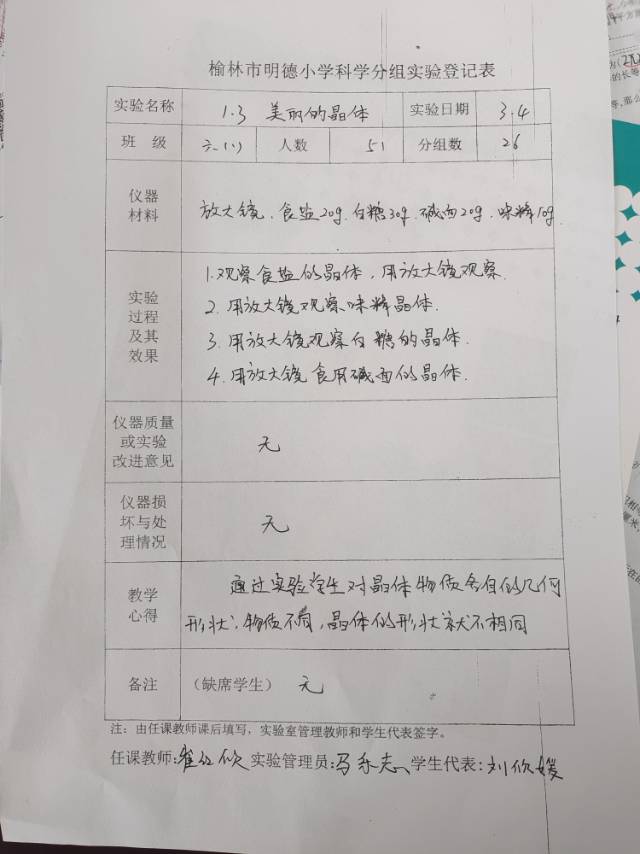 榆林市明德小学科学分组实验登记表
实验名称 1.3 美丽的晶体 实验日期 3.4
班 级 六(1) 人数 51 分组数 26
仪器
材料
放大镜、食盐20g、白糖30g、碱面20g、味精10g
实验
过程
及其
效果
1.观察食盐的晶体,用放大镜观察.
2.用放大镜观察味精晶体.
3.用放大镜观察白糖的晶体.
4.用放大镜食用碱面的晶体.
仪器质量
或实验
改进意见
无
仪器损
坏与处
理情况
无
教学
心得
通过实验学生对晶体物质各自的几何
形状、物质不同,晶体的形状就不相同
备注 (缺席学生) 无
注:由任课教师课后填写,实验室管理教师和学生代表签字。
任课教师: 实验管理员:马 学生代表:刘欣媛